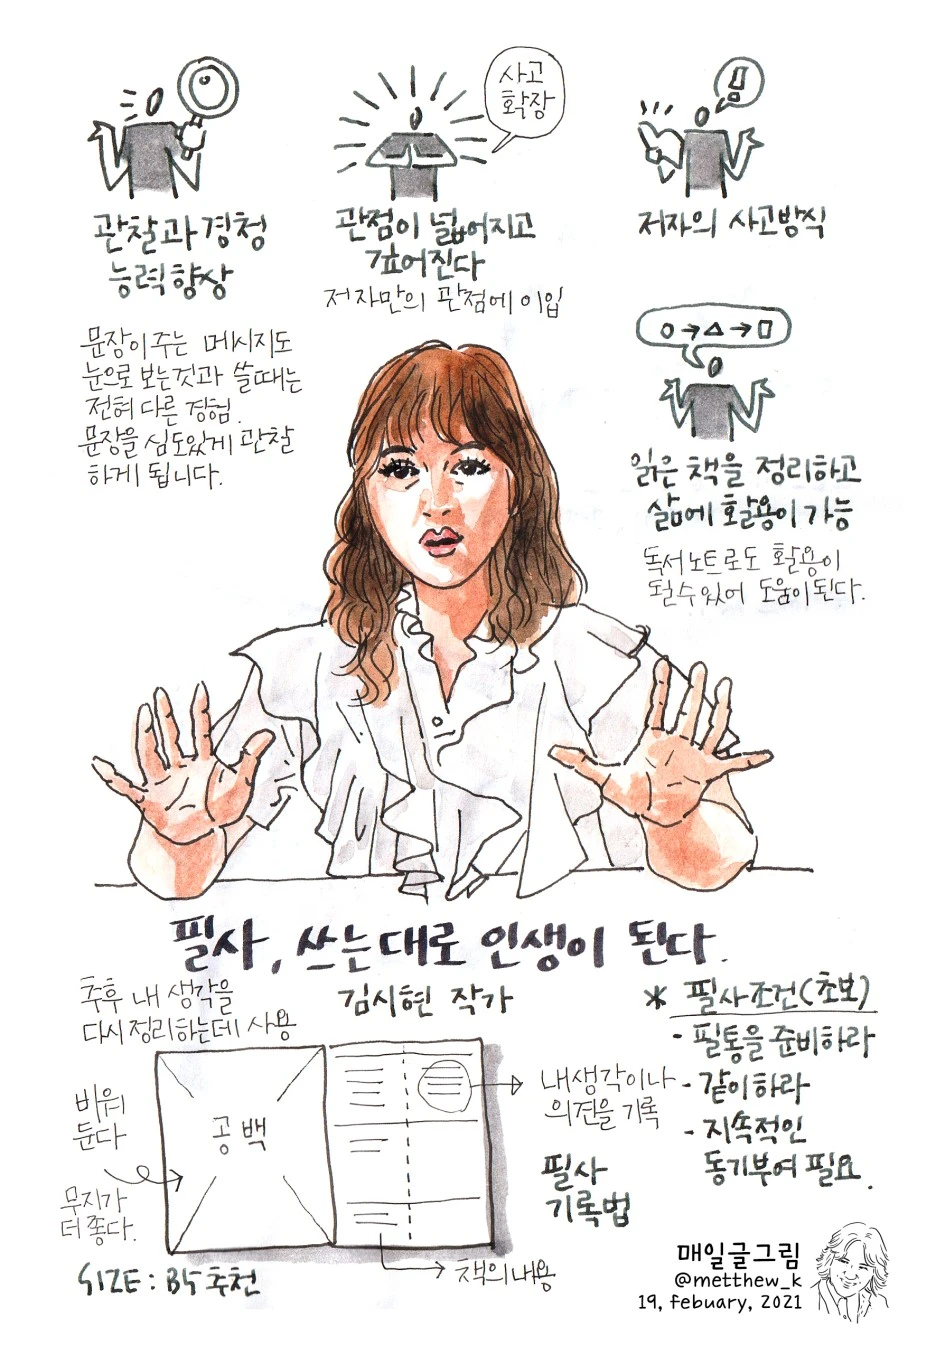 관찰과 경청
능력향상
문장이 주는 메시지도
눈으로 보는것과 쓸때는
전혀 다른 경험.
문장을 심도있게 관찰
하게 됩니다.
사고
확장
관점이 넓어지고
깊어진다
저자만의 관점에 이입
저자의 사고방식
읽은 책을 정리하고
삶에 활용이 가능
독서노트로도 활용이
될수있어 도움이된다.
필사, 쓰는대로 인생이 된다.
김시현 작가
추후 내 생각을
다시정리하는데 사용
비워
둔다
무지가
더좋다.
공백
SIZE : B5 추천
내생각이나
의견을 기록
필사
기록법
책의 내용
* 필사조건(초보)
- 필통을 준비하라
- 같이하라
- 지속적인
동기부여 필요.
매일글그림
@metthew_k
19, febuary, 2021